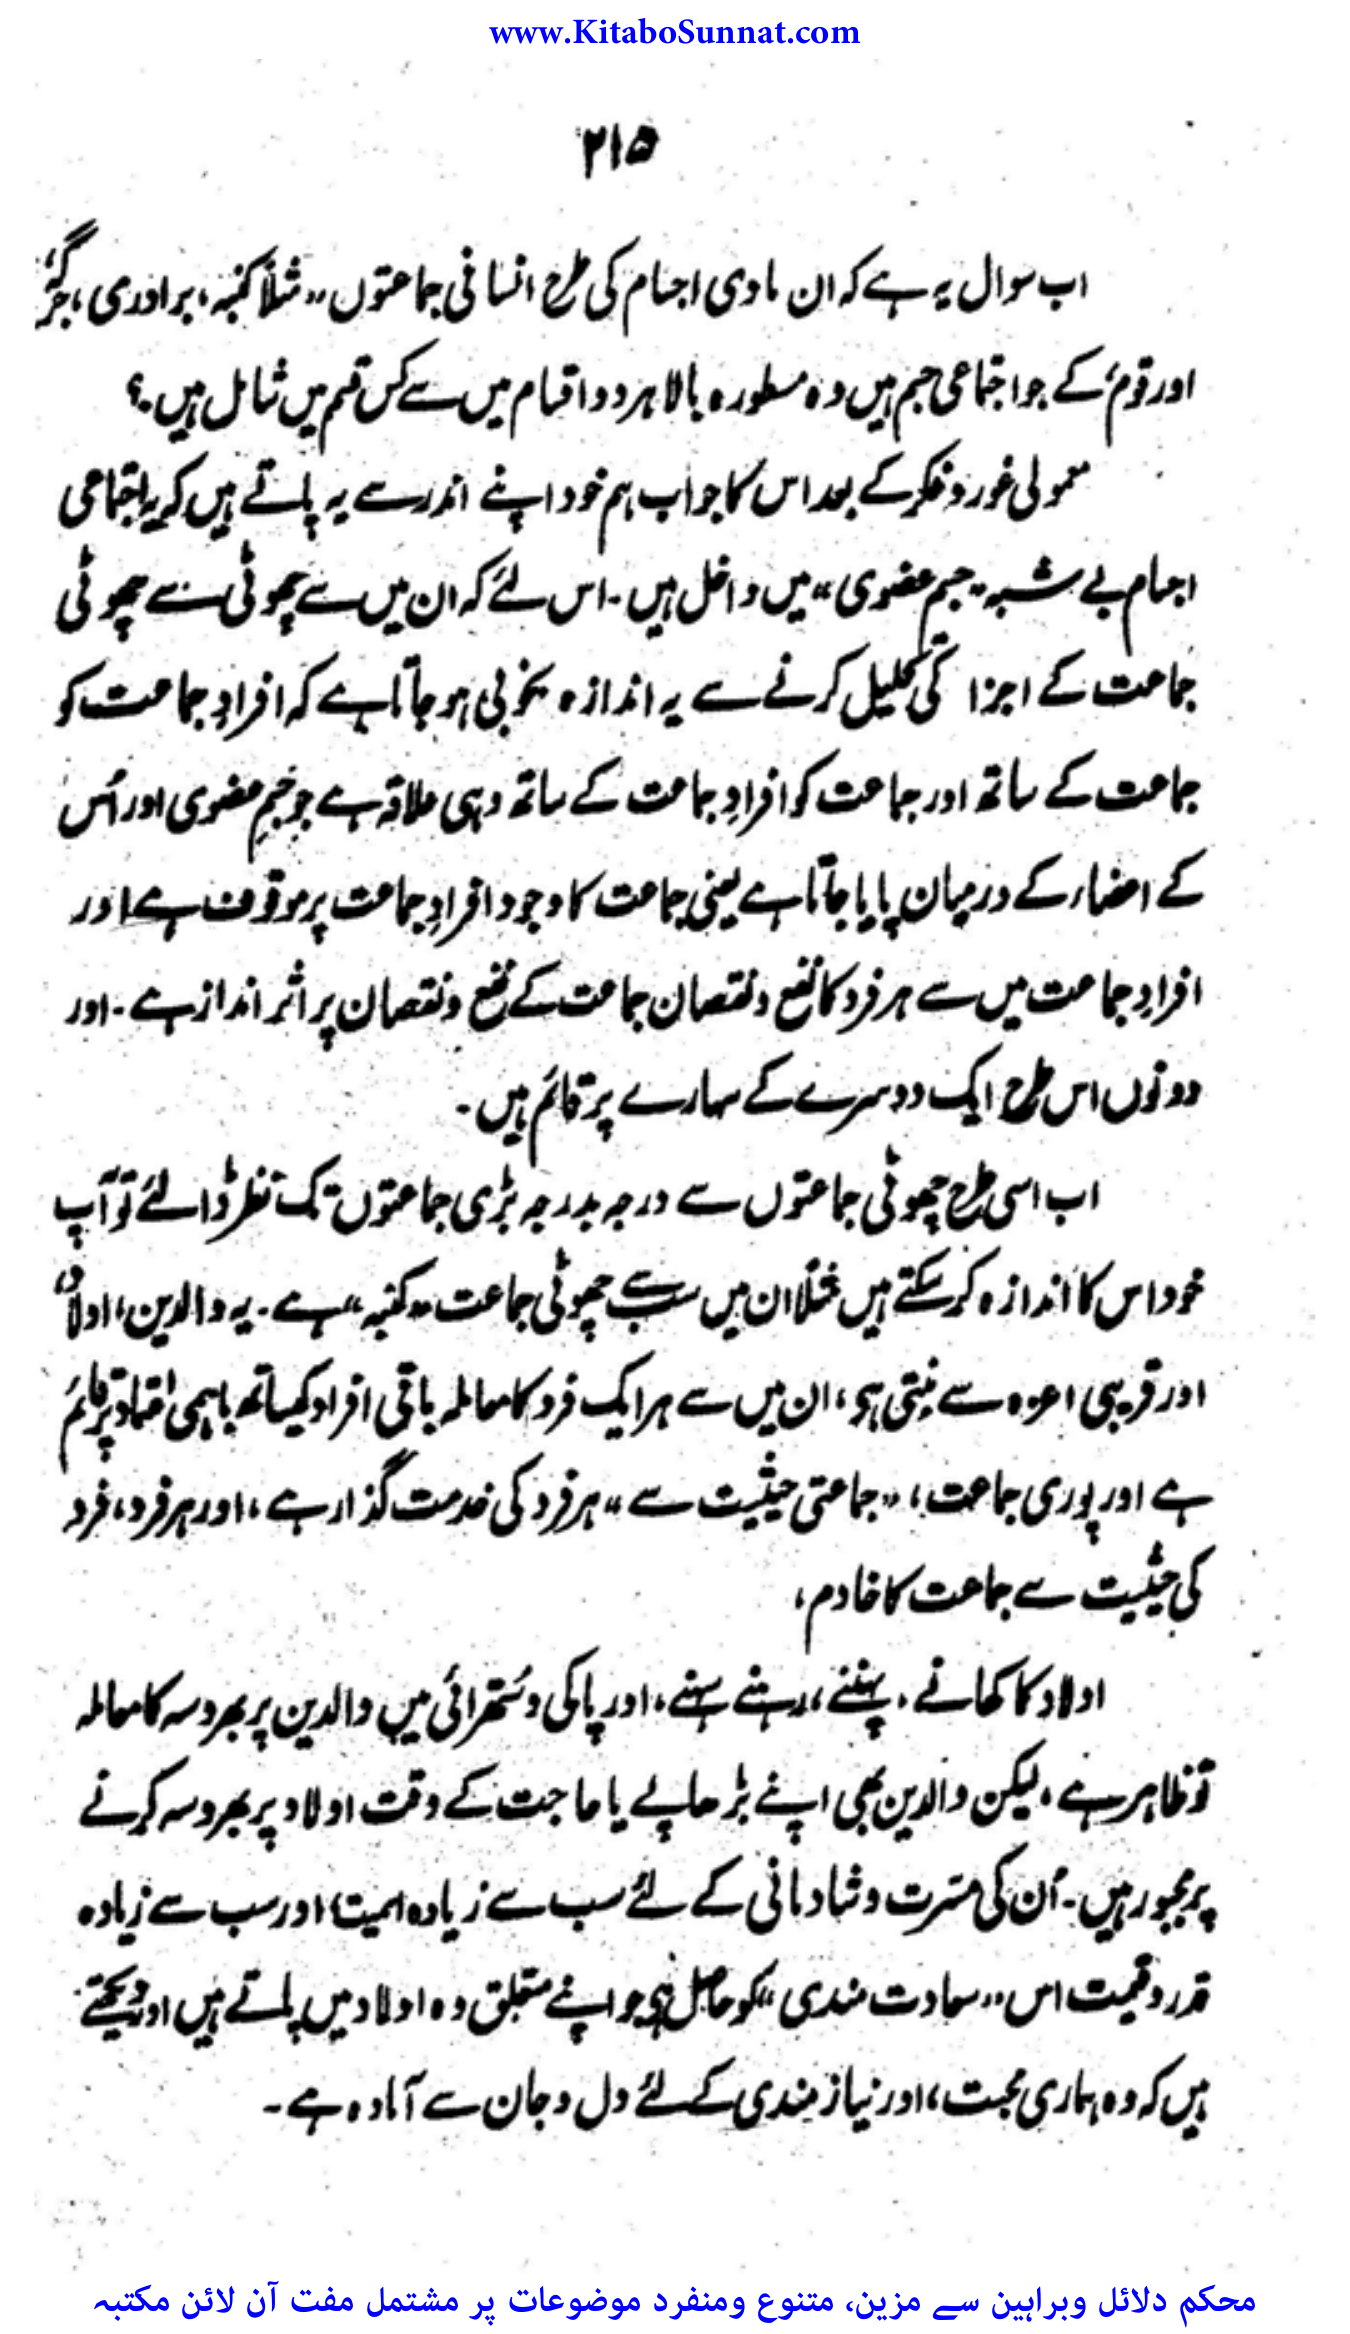 www.KitaboSunnat.com
۲۱۵
اب سوال یہ ہے کہ ان مادی اجسام کی طرح انسانی جماعتوں "مثلاً کنبہ، برادری، جرگہ،
اور قوم" کے جو اجتماعی جسم ہیں وہ مسطورہ بالا ہر دو اقسام میں سے کس قسم میں شامل ہیں۔؟
معمولی غور و فکر کے بعد اس کا جواب ہم خود اپنے اندر سے یہ پاتے ہیں کہ یہ اجتماعی
اجسام بے شبہ "جسم عضوی" میں داخل ہیں۔ اس لئے کہ ان میں سے چھوٹی سے چھوٹی
جماعت کے اجزا کی تحلیل کرنے سے یہ اندازہ بخوبی ہو جاتا ہے کہ افرادِ جماعت کو
جماعت کے ساتھ اور جماعت کو افرادِ جماعت کے ساتھ وہی علاقہ ہے جو جسمِ عضوی اور اُس
کے اعضاء کے درمیان پایا جاتا ہے یعنی جماعت کا وجود افرادِ جماعت پر موقوف ہے اور
افرادِ جماعت میں سے ہر فرد کا نفع و نقصان جماعت کے نفع و نقصان پر اثر انداز ہے۔ اور
دونوں اس طرح ایک دوسرے کے سہارے پر قائم ہیں۔
اب اسی طرح چھوٹی جماعتوں سے درجہ بدرجہ بڑی جماعتوں تک نظر ڈالئے تو آپ
خود اس کا اندازہ کر سکتے ہیں مثلاً ان میں سب سے چھوٹی جماعت "کنبہ" ہے۔ یہ والدین، اولاد،
اور قریبی اعزہ سے بنتی ہی، ان میں سے ہر ایک فرد کا معاملہ باقی افراد کیساتھ باہمی اعتماد پر قائم
ہے اور پوری جماعت، "جماعتی حیثیت سے" ہر فرد کی خدمت گذار ہے، اور ہر فرد، فرد
کی حیثیت سے جماعت کا خادم،
اولاد کا کھانے، پہننے، رہنے سہنے، اور پاکی و ستھرائی میں والدین پر بھروسہ کا معاملہ
تو ظاہر ہے، لیکن والدین بھی اپنے بڑھاپے یا حاجت کے وقت اولاد پر بھروسہ کرنے
پر مجبور ہیں۔ اُن کی مسّرت و شادمانی کے لئے سب سے زیادہ اہمیت اور سب سے زیادہ
قدر و قیمت اس "سعادت مندی" کو حاصل ہی جو اپنے متعلق وہ اولاد میں پاتے ہیں اور دیکھتے
ہیں کہ وہ ہماری محبت، اور نیاز مندی کے لئے دل و جان سے آمادہ ہے۔
محکم دلائل وبراہین سے مزین، متنوع ومنفرد موضوعات پر مشتمل مفت آن لائن مکتبہ